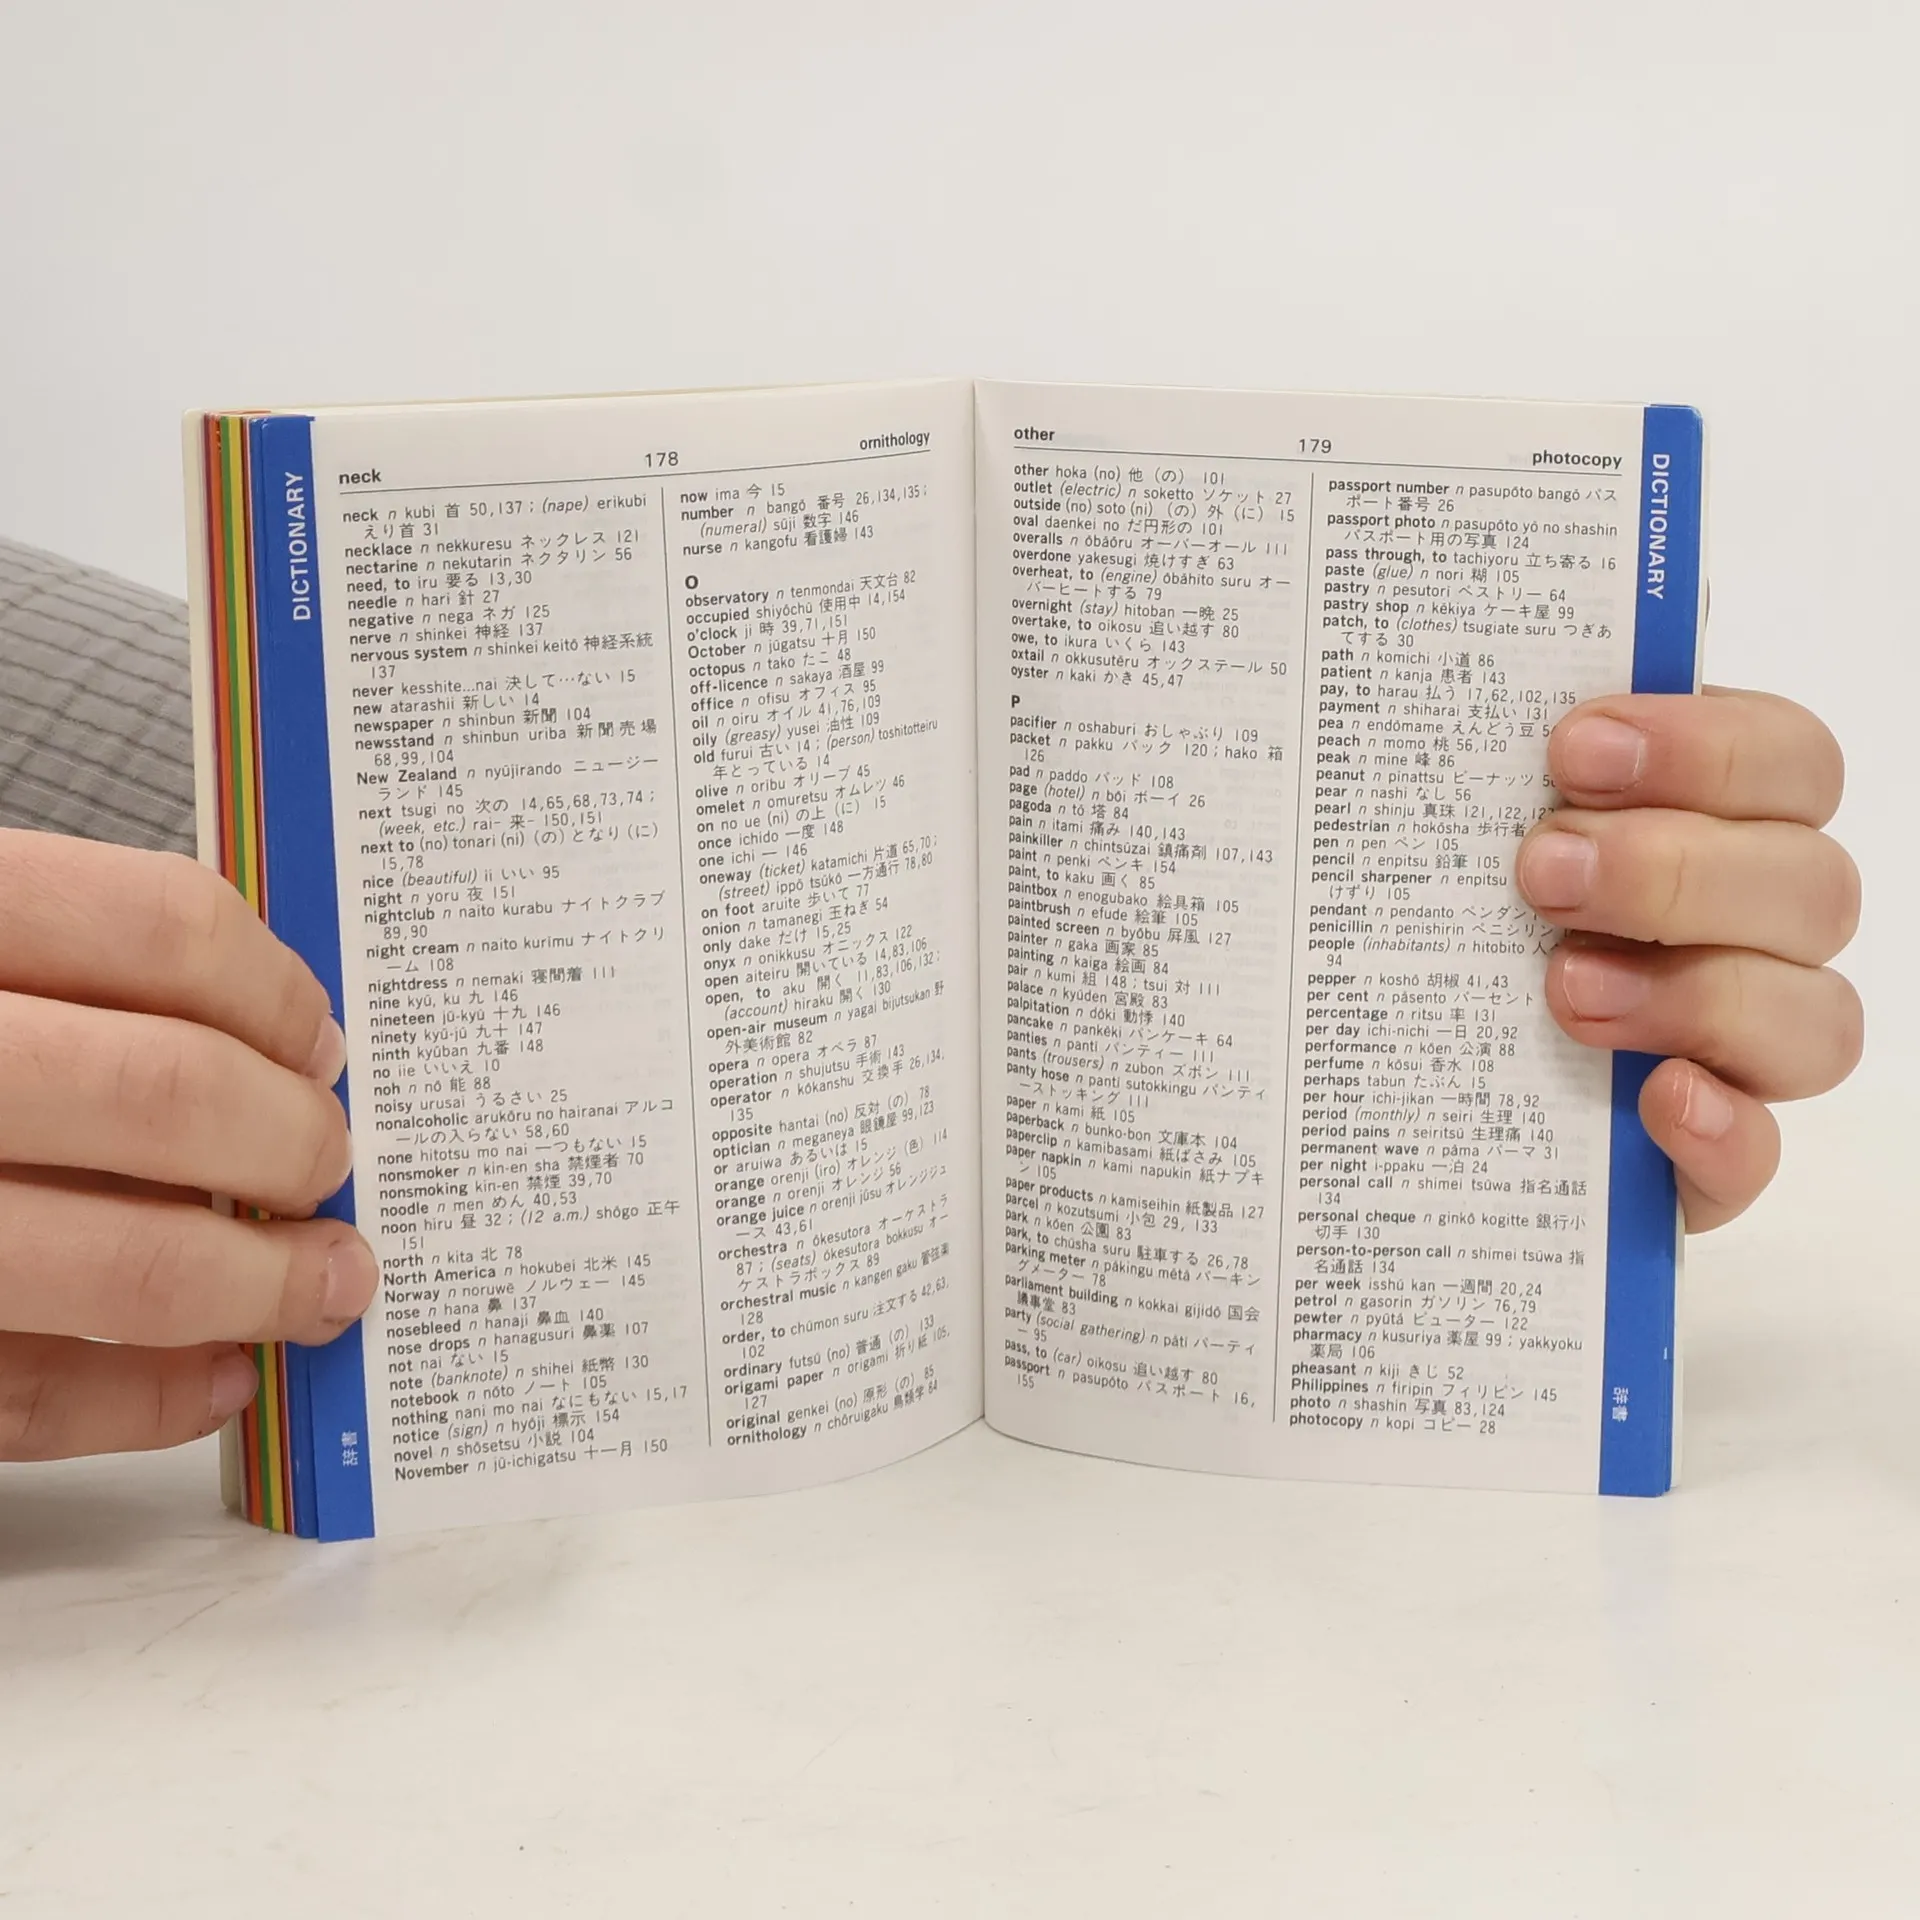 DICTIONARY
辞書
neck
178
ornithology
neck n kubi 首 50,137; (nape) erikubi
えり首 31
necklace n nekkuresu ネックレス 121
nectarine n nekutarin ネクタリン 56
need, to iru 要る 13,30
needle n hari 針 27
negative n nega ネガ 125
nerve n shinkei 神経 137
nervous system n shinkei keitō 神経系統
137
never kesshite...nai 決して…ない 15
new atarashii 新しい 14
newspaper n shinbun 新聞 104
newsstand n shinbun uriba 新聞売場
68,99,104
New Zealand n nyūjirando ニュージー
ランド 145
next tsugi no 次の 14,65,68,73,74;
(week, etc.) rai- 来- 150,151
next to (no) tonari (ni) (の)となり(に)
15,78
nice (beautiful) ii いい 95
night n yoru 夜 151
nightclub n naito kurabu ナイトクラブ
89,90
night cream n naito kurīmu ナイトクリ
ーム 108
nightdress n nemaki 寝間着 111
nine kyū, ku 九 146
nineteen jū-kyū 十九 146
ninety kyū-jū 九十 147
ninth kyūban 九番 148
no iie いいえ 10
noh n nō 能 88
noisy urusai うるさい 25
nonalcoholic arukōru no hairanai アルコ
ールの入らない 58,60
none hitotsu mo nai 一つもない 15
nonsmoker n kin-en sha 禁煙者 70
nonsmoking kin-en 禁煙 39,70
noodle n men めん 40,53
noon hiru 昼 32; (12 a.m.) shōgo 正午
151
north n kita 北 78
North America n hokubei 北米 145
Norway n noruwē ノルウェー 145
nose n hana 鼻 137
nosebleed n hanaji 鼻血 140
nose drops n hanagusuri 鼻薬 107
not nai ない 15
note (banknote) n shihei 紙幣 130
notebook n nōto ノート 105
nothing nani mo nai なにもない 15,17
notice (sign) n hyōji 標示 154
novel n shōsetsu 小説 104
November n jū-ichigatsu 十一月 150
now ima 今 15
number n bangō 番号 26,134,135;
(numeral) sūji 数字 146
nurse n kangofu 看護婦 143
O
observatory n tenmondai 天文台 82
occupied shiyōchū 使用中 14,154
o'clock ji 時 39,71,151
October n jūgatsu 十月 150
octopus n tako たこ 48
off-licence n sakaya 酒屋 99
office n ofisu オフィス 95
oil n oiru オイル 41,76,109
oily (greasy) yusei 油性 109
old furui 古い 14; (person) toshitotteiru
年とっている 14
olive n oribu オリーブ 45
omelet n omuretsu オムレツ 46
on no ue (ni) の上(に) 15
once ichido 一度 148
one ichi 一 146
oneway (ticket) katamichi 片道 65,70;
(street) ippō tsūkō 一方通行 78,80
on foot aruite 歩いて 77
onion n tamanegi 玉ねぎ 54
only dake だけ 15,25
onyx n onikkusu オニックス 122
open aiteiru 開いている 14,83,106
open, to aku 開く 11,83,106,132;
(account) hiraku 開く 130
open-air museum n yagai bijutsukan 野
外美術館 82
opera n opera オペラ 87
operation n shujutsu 手術 143
operator n kōkanshu 交換手 26,134,
135
opposite hantai (no) 反対(の) 78
optician n meganeya 眼鏡屋 99,123
or aruiwa あるいは 15
orange orenji (iro) オレンジ(色) 114
orange n orenji オレンジ 56
orange juice n orenji jūsu オレンジジュ
ース 43,61
orchestra n ōkesutora オーケストラ
87; (seats) ōkesutora bokkusu オー
ケストラボックス 89
orchestral music n kangen gaku 管弦楽
128
order, to chūmon suru 注文する 42,63,
102
ordinary futsū (no) 普通(の) 133
origami paper n origami 折り紙 105,
127
original genkei (no) 原形(の) 85
ornithology n chōruigaku 鳥類学 84
other
179
photocopy
other hoka (no) 他(の) 101
outlet (electric) n soketto ソケット 27
outside (no) soto (ni) (の)外(に) 15
oval daenkei no だ円形の 101
overalls n ōbāōru オーバーオール 111
overdone yakesugi 焼けすぎ 63
overheat, to (engine) ōbāhito suru オー
バーヒートする 79
overnight (stay) hitoban 一晩 25
overtake, to oikosu 追い越す 80
owe, to ikura いくら 143
oxtail n okkusutēru オックステール 50
oyster n kaki かき 45,47
P
pacifier n oshaburi おしゃぶり 109
packet n pakku パック 120; hako 箱
126
pad n paddo パッド 108
page (hotel) n bōi ボーイ 26
pagoda n tō 塔 84
pain n itami 痛み 140,143
painkiller n chintsūzai 鎮痛剤 107,143
paint n penki ペンキ 154
paint, to kaku 画く 85
paintbox n enogubako 絵具箱 105
paintbrush n efude 絵筆 105
painted screen n byōbu 屏風 127
painter n gaka 画家 85
painting n kaiga 絵画 84
pair n kumi 組 148; tsui 対 111
palace n kyūden 宮殿 83
palpitation n dōki 動悸 140
pancake n pankēki パンケーキ 64
panties n panti パンティー 111
pants (trousers) n zubon ズボン 111
panty hose n panti sutokkingu パンティ
ーストッキング 111
paper n kami 紙 105
paperback n bunko-bon 文庫本 104
paperclip n kamibasami 紙ばさみ 105
paper napkin n kami napukin 紙ナプキ
ン 105
paper products n kamiseihin 紙製品 127
parcel n kozutsumi 小包 29, 133
park n kōen 公園 83
park, to chūsha suru 駐車する 26,78
parking meter n pākingu mētā パーキン
グメーター 78
parliament building n kokkai gijidō 国会
議事堂 83
party (social gathering) n pāti パーティ
ー 95
pass, to (car) oikosu 追い越す 80
passport n pasupōto パスポート 16,
155
passport number n pasupōto bangō パス
ポート番号 26
passport photo n pasupōto yō no shashin
パスポート用の写真 124
pass through, to tachiyoru 立ち寄る 16
paste (glue) n nori 糊 105
pastry n pesutori ペストリー 64
pastry shop n kēkiya ケーキ屋 99
patch, to (clothes) tsugiate suru つぎあ
てする 30
path n komichi 小道 86
patient n kanja 患者 143
pay, to harau 払う 17,62,102,135
payment n shiharai 支払い 131
pea n endōmame えんどう豆
peach n momo 桃 56,120
peak n mine 峰 86
peanut n pinattsu ピーナッツ
pear n nashi なし 56
pearl n shinju 真珠 121,122,127
pedestrian n hokōsha 歩行者
pen n pen ペン 105
pencil n enpitsu 鉛筆 105
pencil sharpener n enpitsu
けずり 105
pendant n pendanto ペンダン
penicillin n penishirin ペニシリン
people (inhabitants) n hitobito 人
94
pepper n koshō 胡椒 41,43
per cent n pāsento パーセント
percentage n ritsu 率 131
per day ichi-nichi 一日 20,92
performance n kōen 公演 88
perfume n kōsui 香水 108
perhaps tabun たぶん 15
per hour ichi-jikan 一時間 78,92
period (monthly) n seiri 生理 140
period pains n seiritsū 生理痛 140
permanent wave n pāma パーマ 31
per night i-ppaku 一泊 24
personal call n shimei tsūwa 指名通話
134
personal cheque n ginkō kogitte 銀行小
切手 130
person-to-person call n shimei tsūwa 指
名通話 134
per week isshū kan 一週間 20,24
petrol n gasorin ガソリン 76,79
pewter n pyūtā ピューター 122
pharmacy n kusuriya 薬屋 99; yakkyoku
薬局 106
pheasant n kiji きじ 52
Philippines n firipin フィリピン 145
photo n shashin 写真 83,124
photocopy n kopi コピー 28
DICTIONARY
辞書